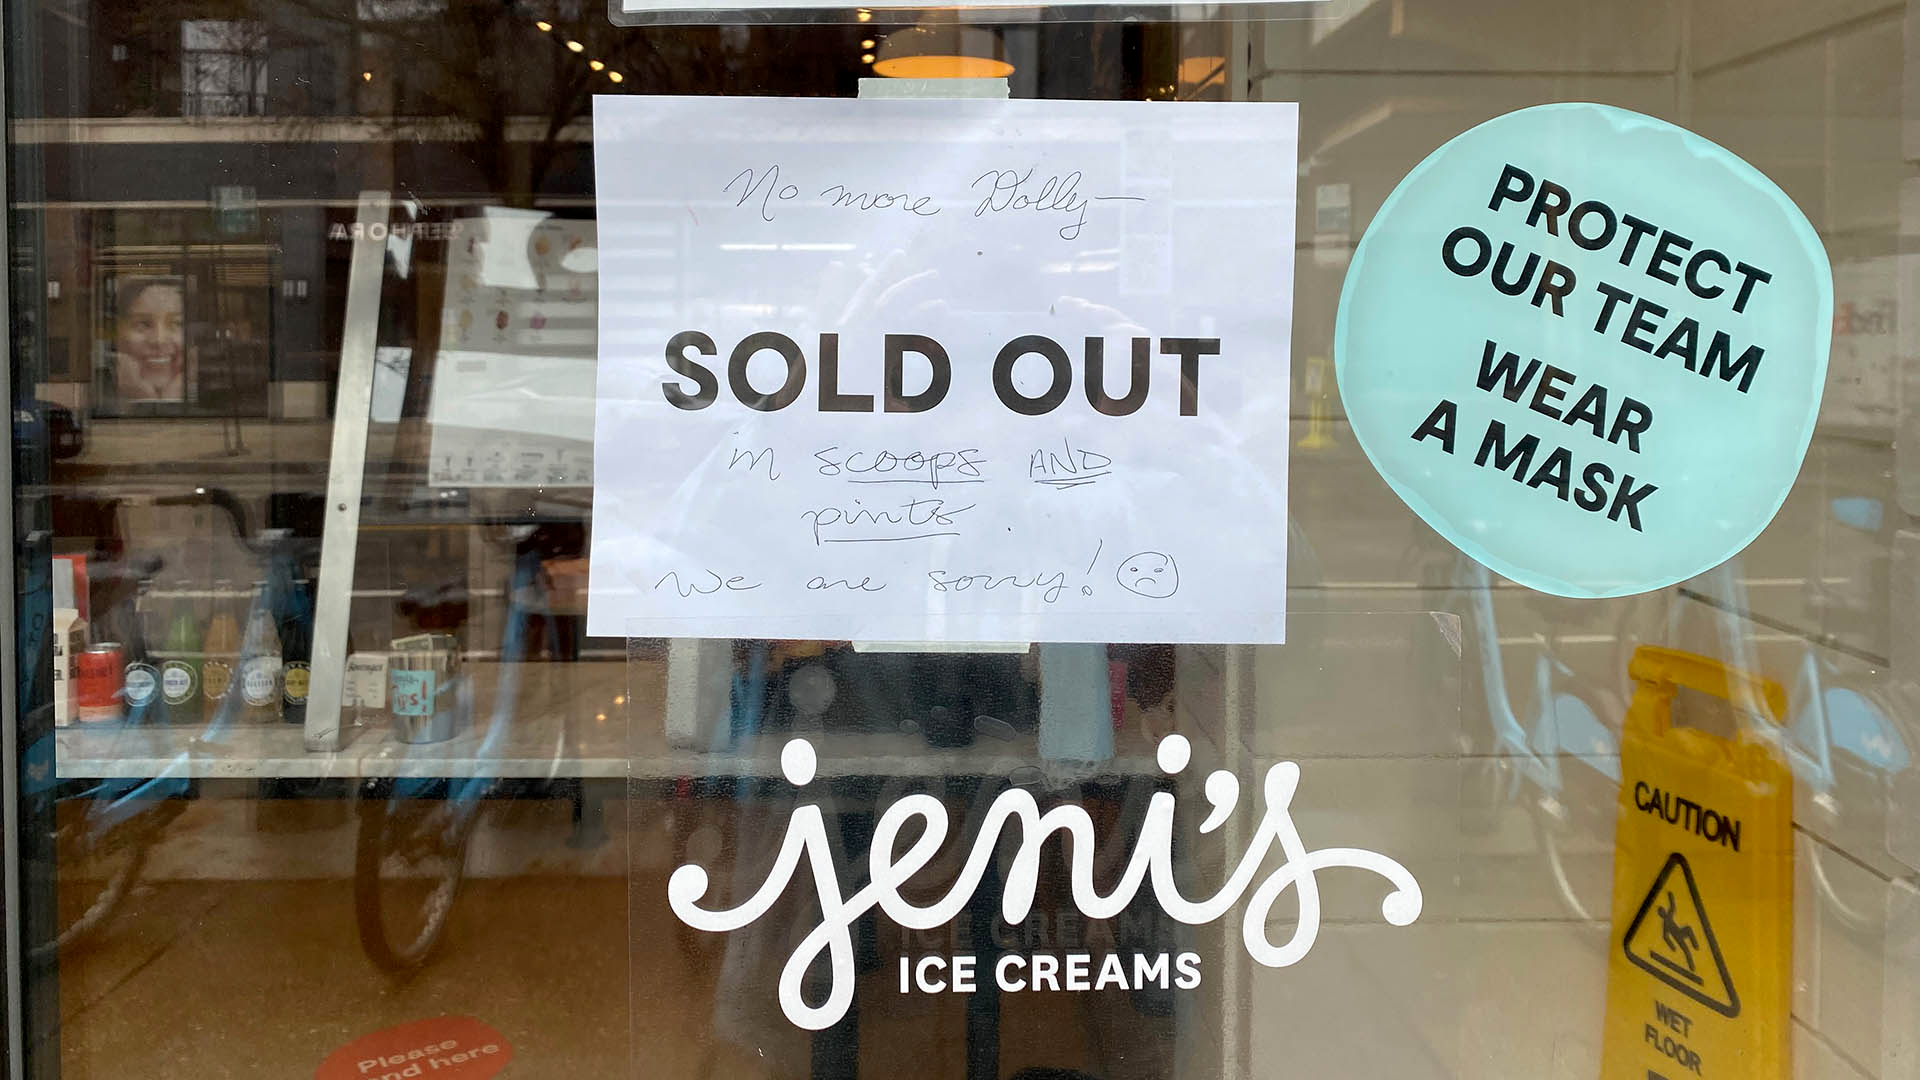 No more Dolly—
SOLD OUT
in scoops AND
pints.
We are sorry!
PROTECT
OUR TEAM
WEAR
A MASK
SEPHORA
jeni's
ICE CREAMS
CAUTION
WET
FLOOR
Please
here